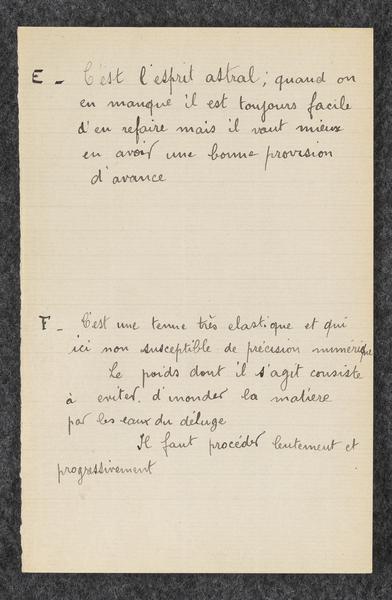 E - C'est l'esprit astral ; quand on
en manque il est toujours facile
d'en refaire mais il vaut mieux
en avoir une bonne provision
d'avance
F - C'est une tenue très elastique et qui
ici non susceptible de précision numérique
Le poids dont il s'agit consiste
à eviter d'inonder la matiere
par les eaux du déluge
Il faut procéder lentement et
progressivement